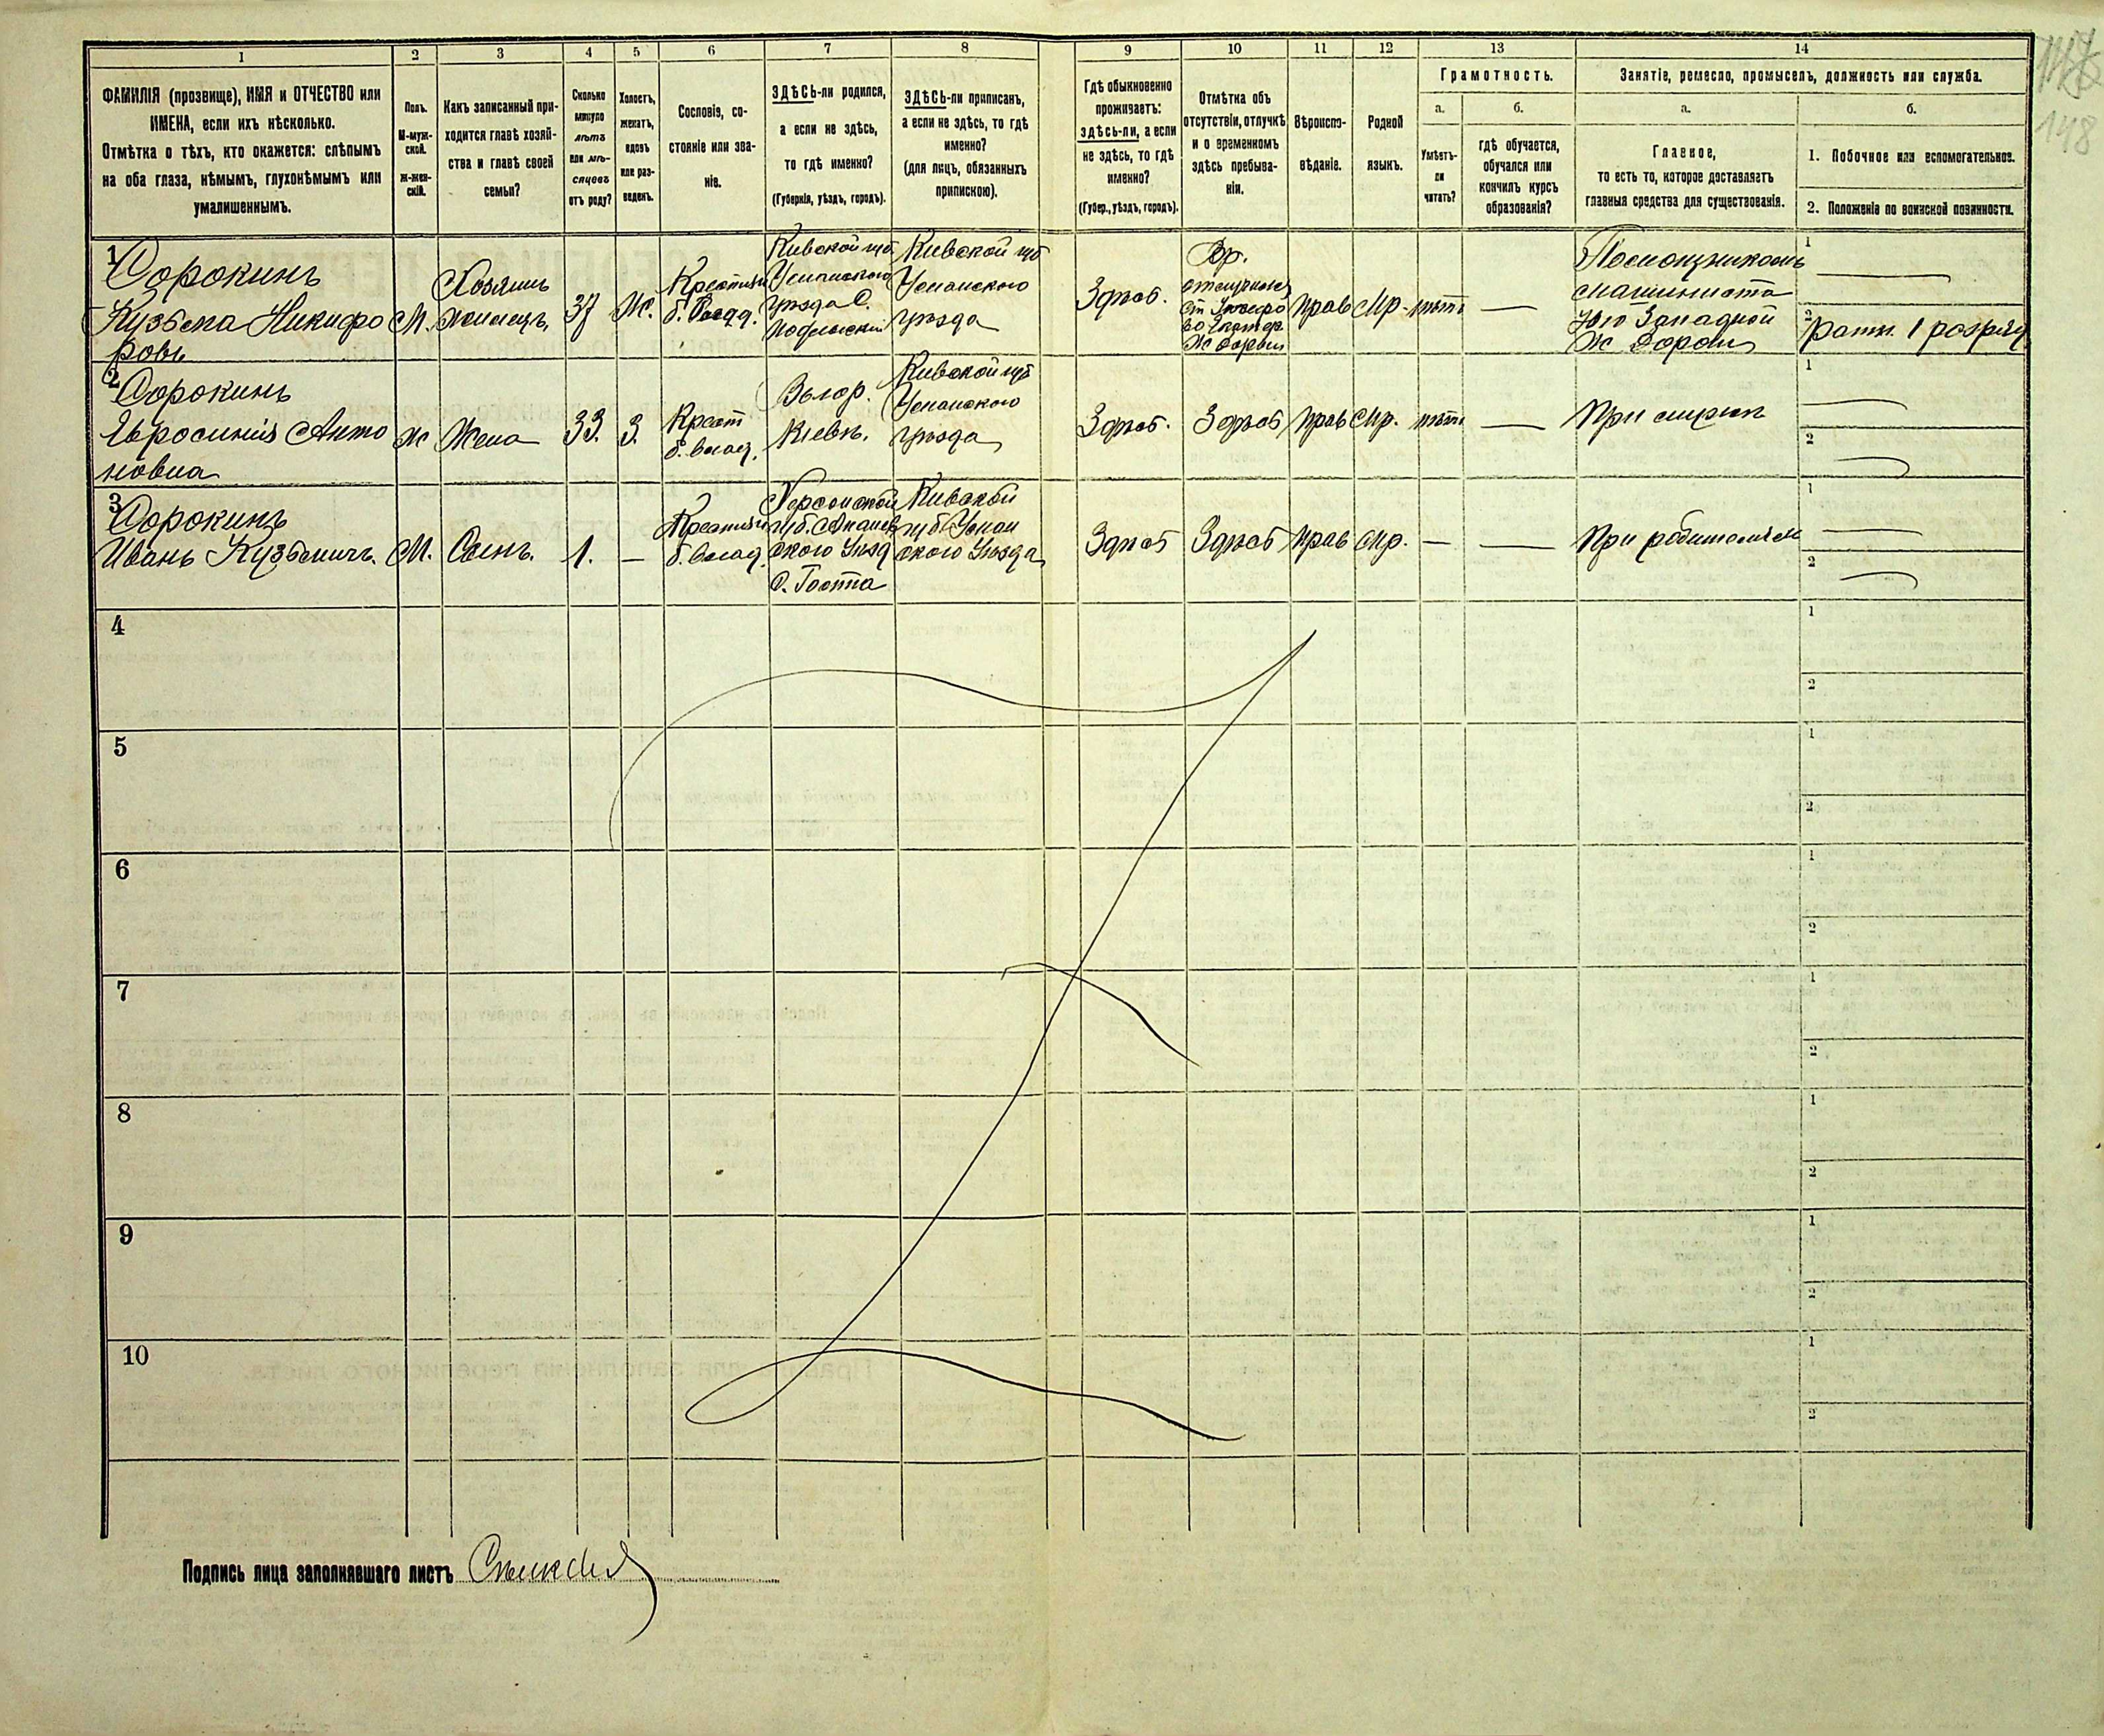 1 2 3 4 5 6 7 8 9 10 11 12 13 14
ФАМИЛІЯ (прозвище), ИМЯ и ОТЧЕСТВО или
ИМЕНА, если ихъ нѣсколько.
Отмѣтка о тѣхъ, кто окажется: слѣпымъ
на оба глаза, нѣмымъ, глухонѣмымъ или
умалишеннымъ.
Полъ.
М-муж-
ской.
Ж-жен-
скій.
Какъ записанный при-
ходится главѣ хозяй-
ства и главѣ своей
семьи?
Сколько
минуло
лѣтъ
или мѣ-
сяцевъ
отъ роду?
Холостъ,
женатъ,
вдовъ
или раз-
веденъ.
Сословіе, со-
стояніе или зва-
ніе.
ЗДѢСЬ-ли родился,
а если не здѣсь,
то гдѣ именно?
(Губернія, уѣздъ, городъ).
ЗДѢСЬ-ли приписанъ,
а если не здѣсь, то гдѣ
именно?
(для лицъ, обязанныхъ
припискою).
Гдѣ обыкновенно
проживаетъ:
здѣсь-ли, а если
не здѣсь, то гдѣ
именно?
(Губер., уѣздъ, городъ).
Отмѣтка объ
отсутствіи, отлучкѣ
и о временномъ
здѣсь пребыва-
ніи.
Вѣроиспо-
вѣданіе.
Родной
языкъ.
Грамотность.
а.
Умѣетъ-
ли
читать?
б.
гдѣ обучается,
обучался или
кончилъ курсъ
образованія?
Занятіе, ремесло, промыселъ, должность или служба.
а.
Главное,
то есть то, которое доставляетъ
главныя средства для существованія.
б.
1. Побочное или вспомогательное.
2. Положеніе по воинской повинности.
148
1
Сорокинъ
Кузьма Никифо
ровъ
М.
Хозяинъ
жилецъ
37
Ж.
Крестьян
б. Влад.
Кивской губ.
Уманского
уѣзда С.
Кивской губ
Уманского
уѣзда
Здѣсь.
Вр.
Ж Дороги
Прав
Мр.
нѣтъ
Помощникомъ
машиниста
Юго Западной
Ж Дороги
1
2
Ратн. 1 разряд
2
Сорокинъ
Евросинія Анто
новна
Ж
Жена
33.
З.
Крест
б. влад.
В гор.
Кіевѣ.
Кивской губ
Уманского
уѣзда
Здѣсь.
Здѣсь
Прав
Мр.
нѣтъ
При мужѣ
1
2
3
Сорокинъ
Иванъ Кузьмичъ.
М.
Сынъ.
1.
Крестьян
б. влад.
Херсонской
губ. Ананьев
ского Уѣзд
Кивской
губ. Уман
ского Уѣзда
Здѣсь
Здѣсь
Прав
Мр.
При родителяхъ
1
2
4
1
2
5
1
2
6
1
2
7
1
2
8
1
2
9
1
2
10
1
2
Подпись лица заполнявшаго листъ